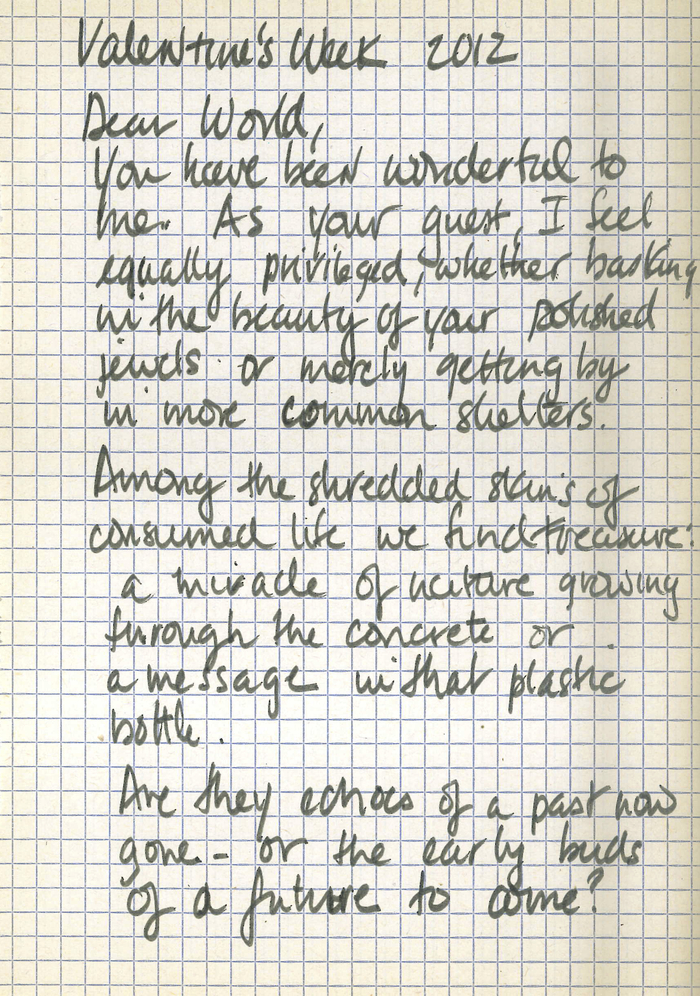 Valentine's Week 2012
Dear World,
You have been wonderful to
me. As your guest, I feel
equally privileged, whether basking
in the beauty of your polished
jewels or merely getting by
in more common shelters.
Among the shredded skins of
consumed life we find treasure:
a miracle of nature growing
through the concrete or
a message in that plastic
bottle.
Are they echoes of a past now
gone - or the early buds
of a future to come?